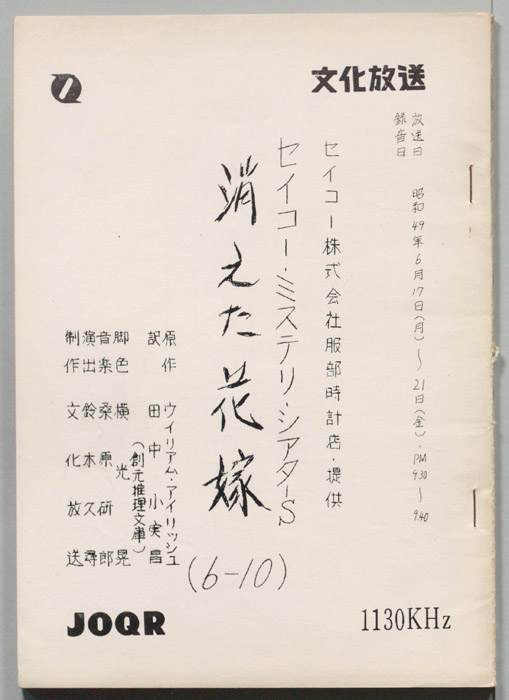 文化放送
放送日 昭和49年6月17日(月)〜21日(金)・PM 9.30〜9.40
録音日
セイコー株式会社服部時計店・提供
セイコー・ミステリ・シアターS
消えた花嫁
(6-10)
原作 ウイリアム・アイリッシュ
訳 田中小実昌
(創元推理文庫)
脚色 横光晃
音楽 桑原研郎
演出 鈴木久尋
制作 文化放送
JOQR
1130KHz